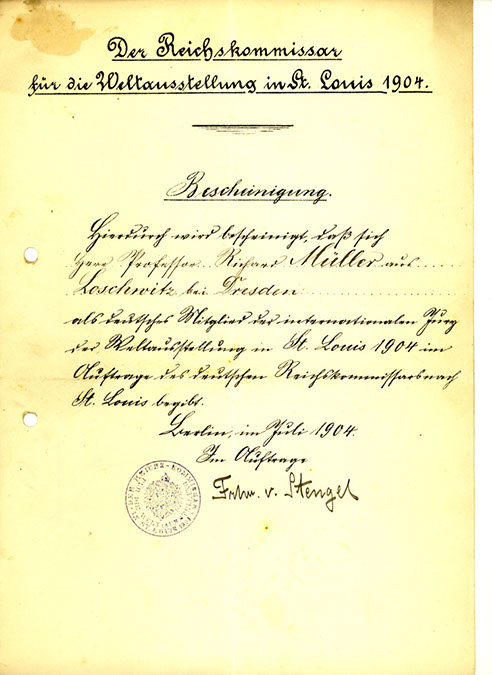 Der Reichskommissar
für die Weltausstellung in St. Louis 1904.
Bescheinigung.
Hierdurch wird bescheinigt, daß sich
Herr Professor Richard Müller aus
Loschwitz bei Dresden
als deutsches Mitglied der internationalen Jury
der Weltausstellung in St. Louis 1904 im
Auftrage des deutschen Reichskommissars nach
St. Louis begibt.
Berlin, im Juli 1904.
Im Auftrage
Frhr. v. Stengel